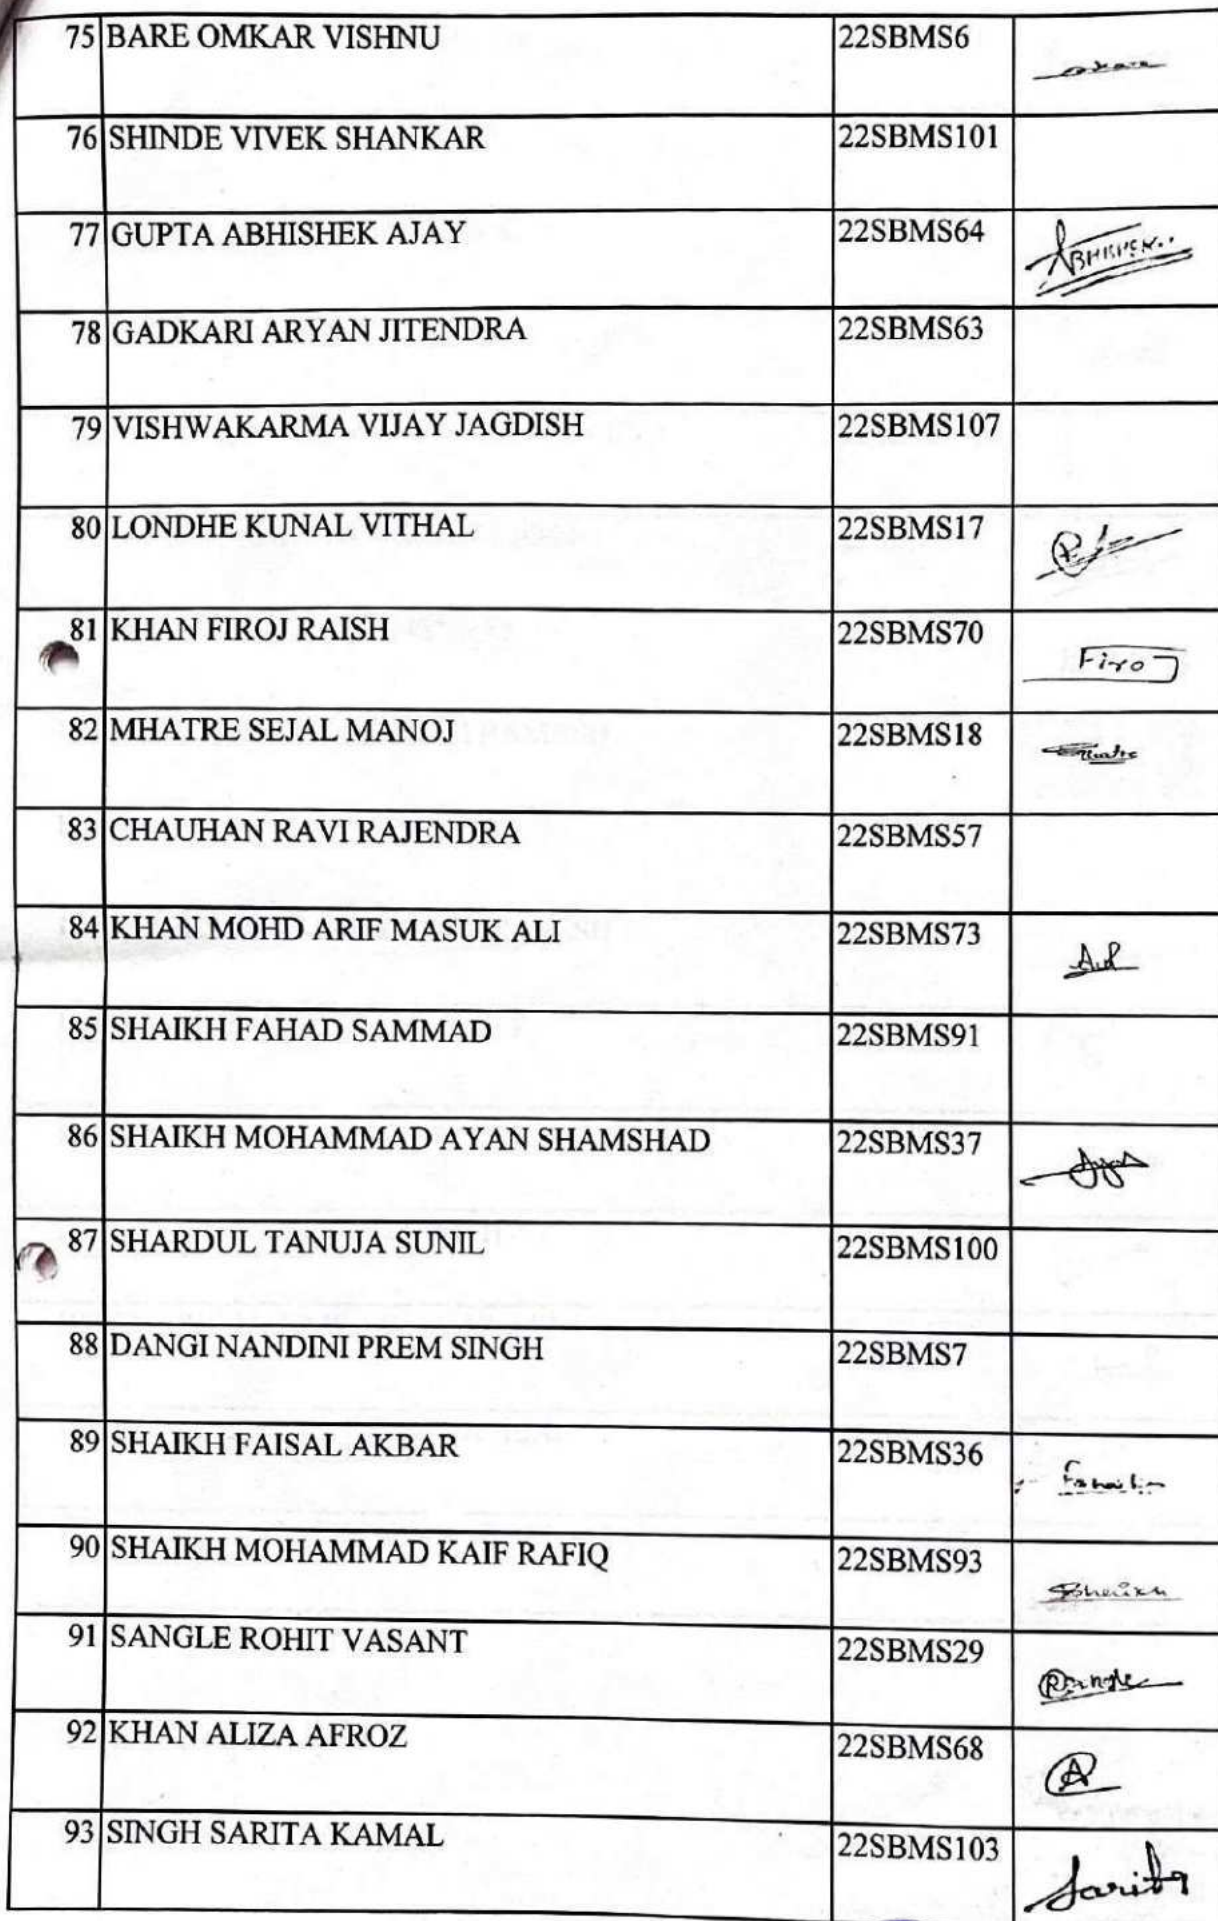 75 BARE OMKAR VISHNU 22SBMS6
76 SHINDE VIVEK SHANKAR 22SBMS101
77 GUPTA ABHISHEK AJAY 22SBMS64
78 GADKARI ARYAN JITENDRA 22SBMS63
79 VISHWAKARMA VIJAY JAGDISH 22SBMS107
80 LONDHE KUNAL VITHAL 22SBMS17
81 KHAN FIROJ RAISH 22SBMS70 Firoj
82 MHATRE SEJAL MANOJ 22SBMS18
83 CHAUHAN RAVI RAJENDRA 22SBMS57
84 KHAN MOHD ARIF MASUK ALI 22SBMS73
85 SHAIKH FAHAD SAMMAD 22SBMS91
86 SHAIKH MOHAMMAD AYAN SHAMSHAD 22SBMS37
87 SHARDUL TANUJA SUNIL 22SBMS100
88 DANGI NANDINI PREM SINGH 22SBMS7
89 SHAIKH FAISAL AKBAR 22SBMS36
90 SHAIKH MOHAMMAD KAIF RAFIQ 22SBMS93
91 SANGLE ROHIT VASANT 22SBMS29
92 KHAN ALIZA AFROZ 22SBMS68 A
93 SINGH SARITA KAMAL 22SBMS103 Sarita